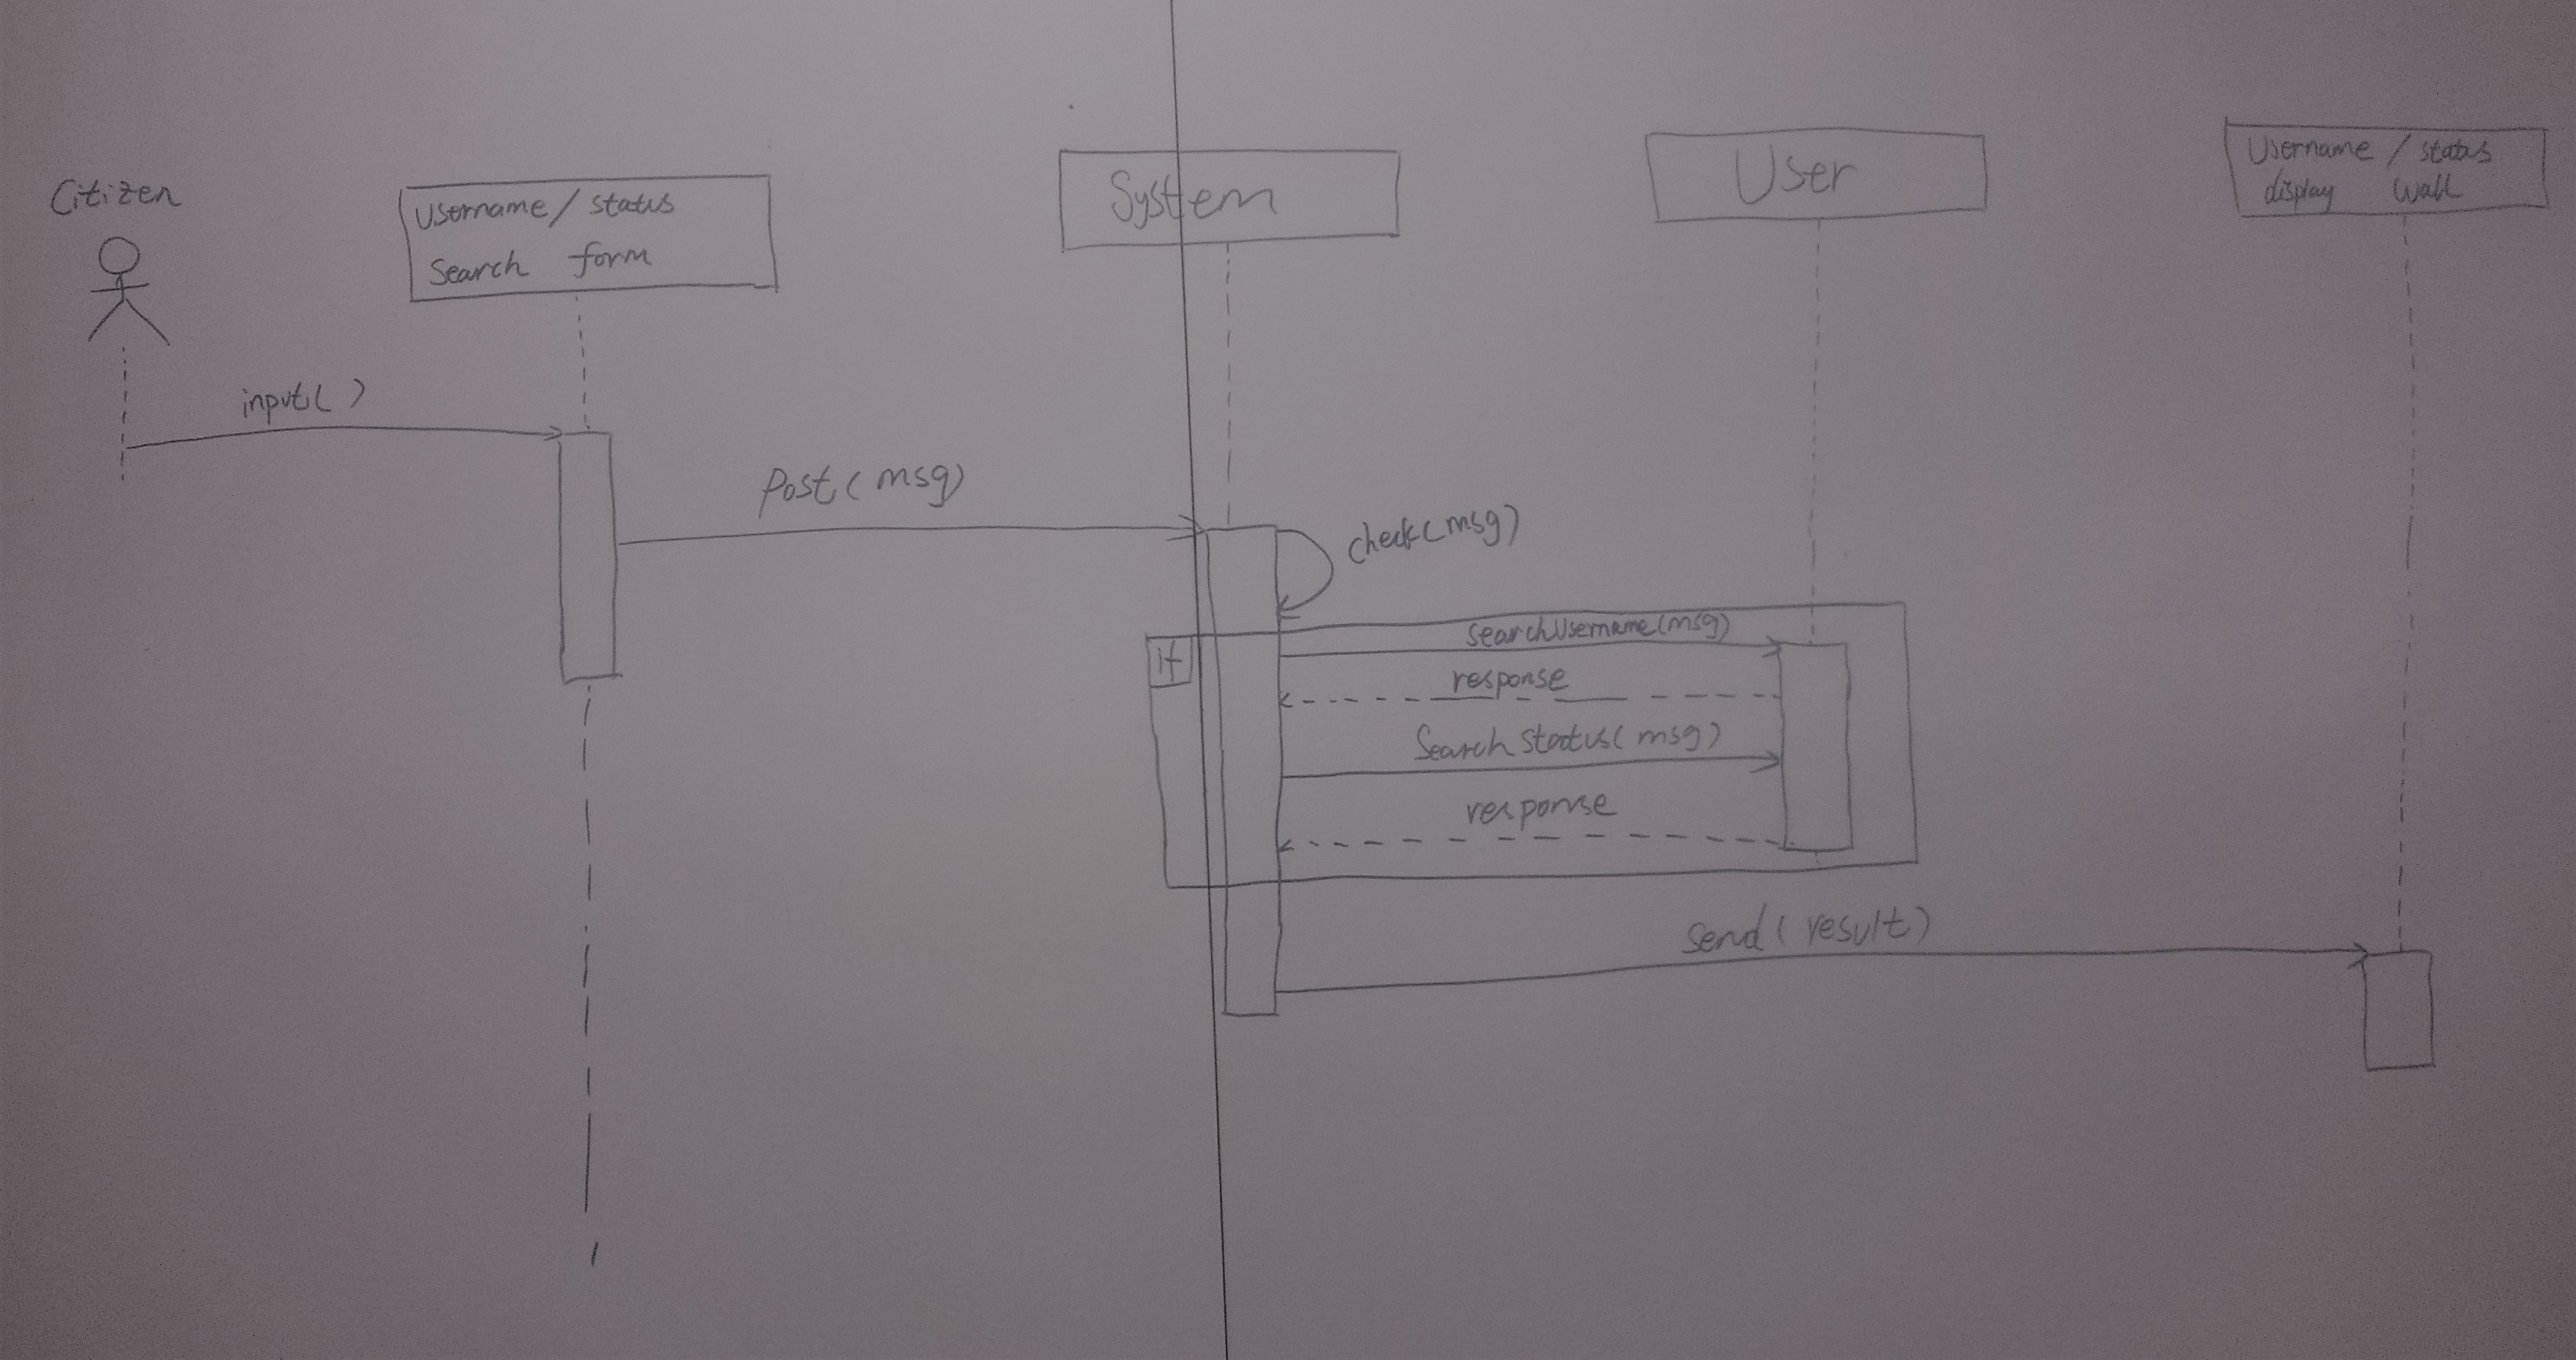 Citizen
Username / status
Search form
System
User
Username / status
display Wall
input( )
Post( msg)
check(msg)
if
searchUsername(msg)
response
Search Status( msg)
response
Send( result)